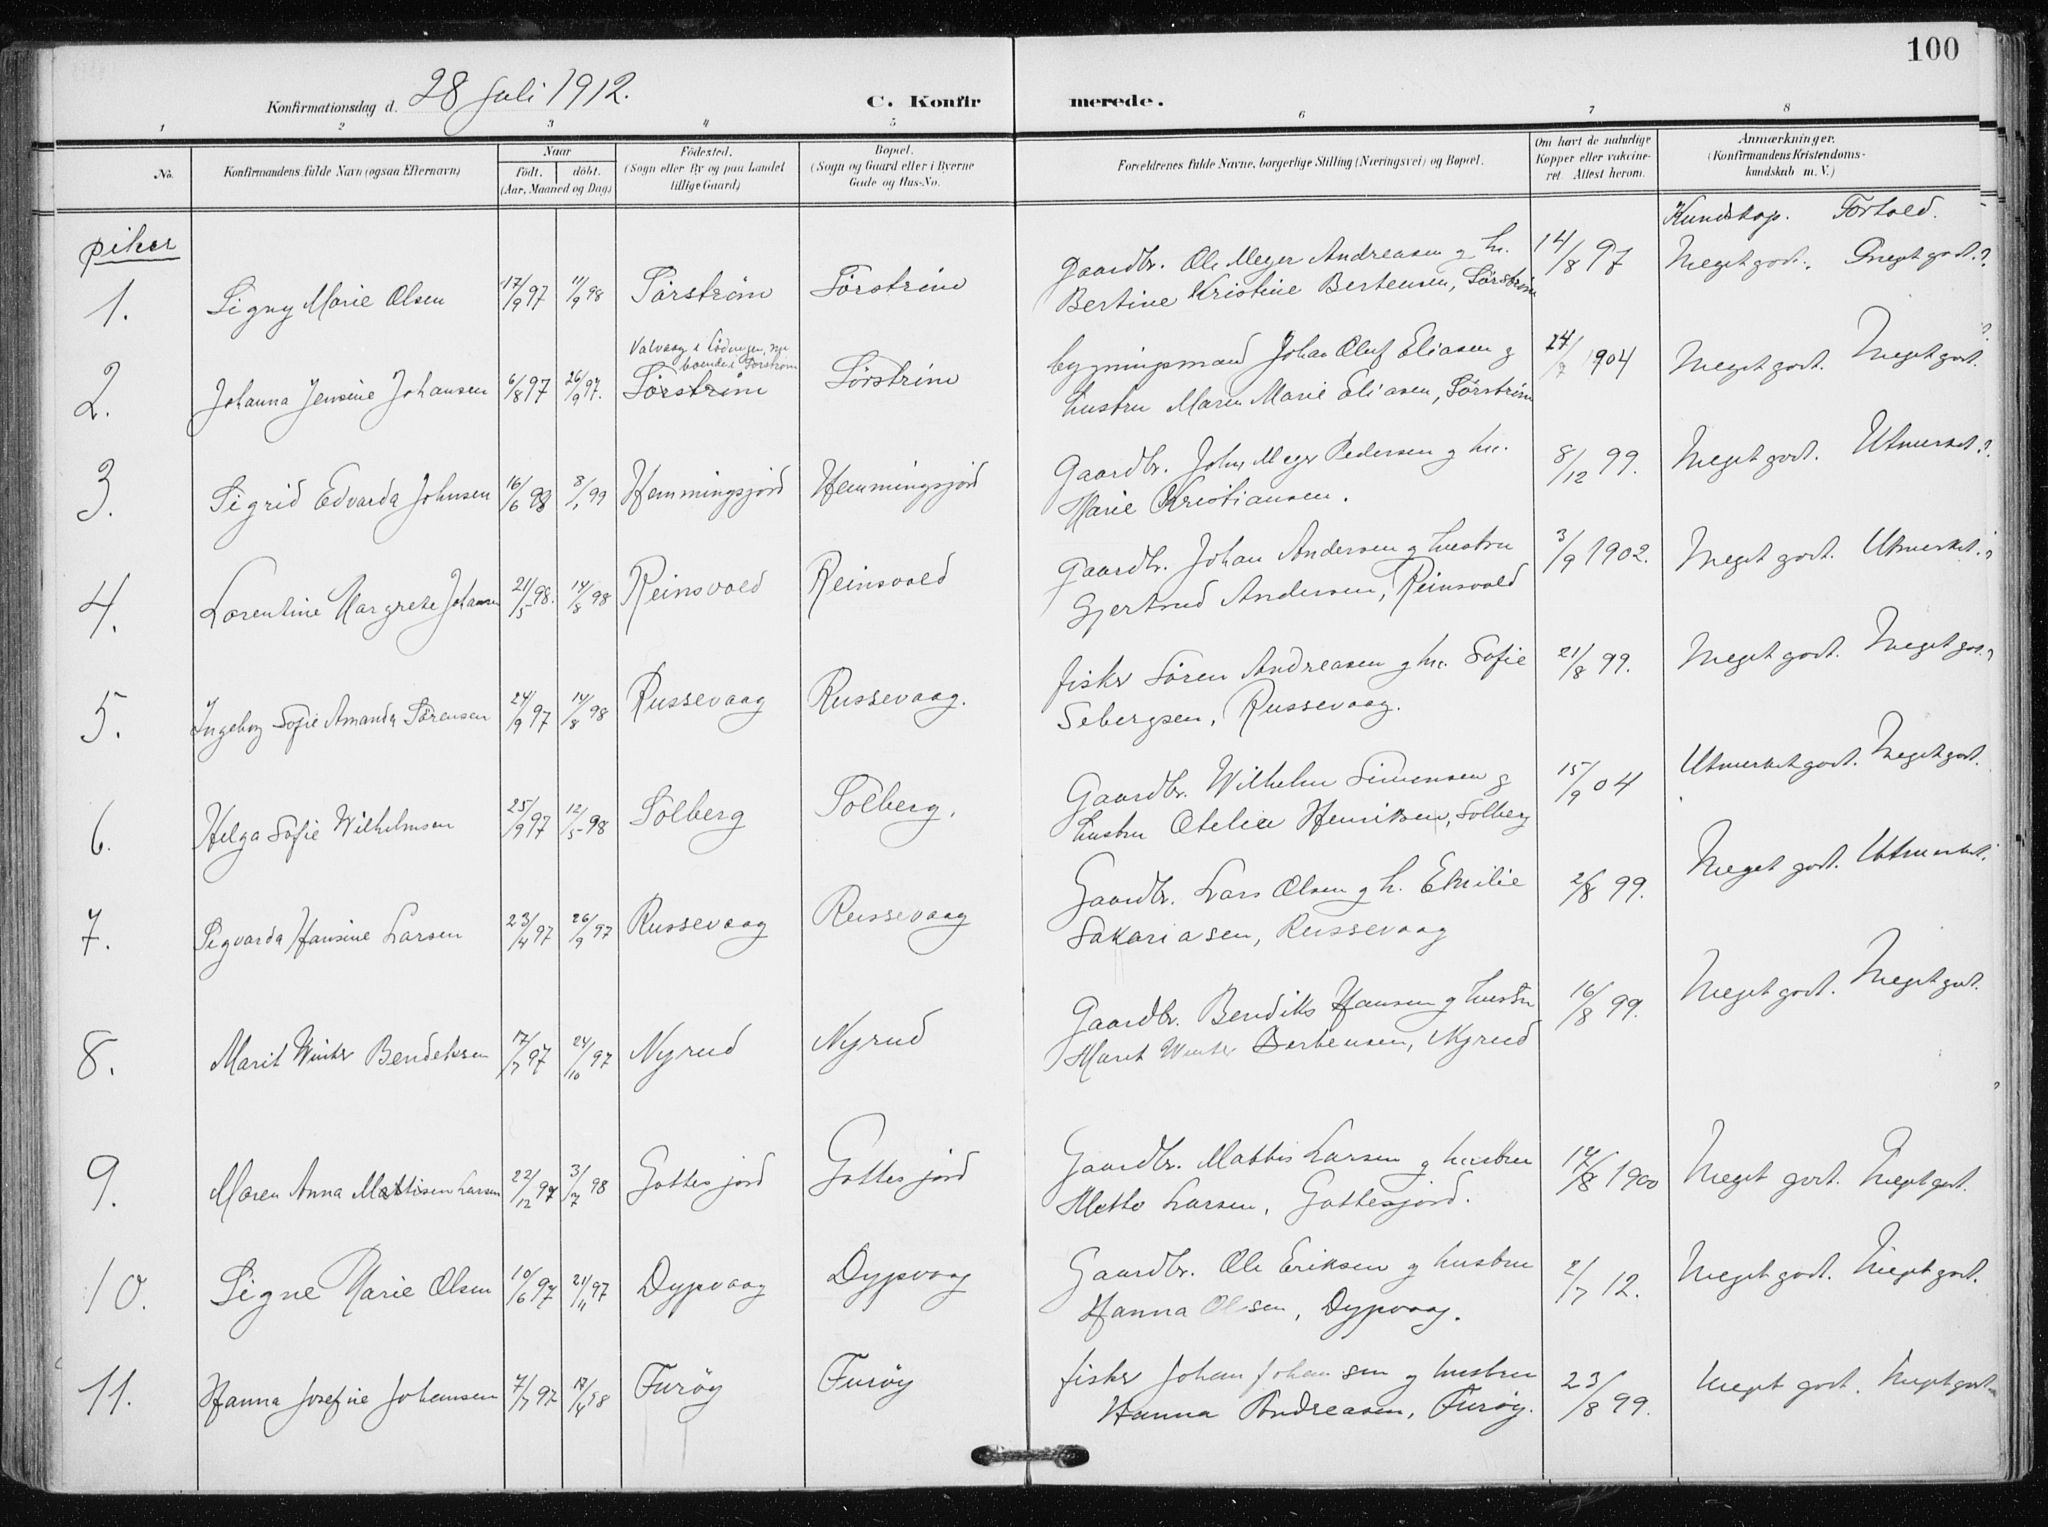 100
Konfirmationsdag d. 28 juli 1912. C. Konfirmerede.
1 2 3 4 5 6 7 8
No. Konfirmandens fulde Navn (ogsaa Efternavn) Naar født. døbt. (Aar, Maaned og Dag) Fødested. (Sogn eller By og paa Landet tillige Gaard) Bopæl. (Sogn og Gaard eller i Byerne Gade og Hus-No. Forældrenes fulde Navne, borgerlige Stilling (Næringsvei) og Bopæl. Om havt de naturlige Kopper eller vakcineret. Attest herom. Anmærkninger. (Konfirmandens Kristendomskundskab m. V.)
piker Kundskap. Forhold.
1. Signy Marie Olsen 17/9 97 11/9 98 Sørstrøm Sørstrøm Gaardbr. Ole Meyer Andreasen g h. 14/8 97 Meget godt. Meget godt.
Bertine Kristine Bertensen, Sørstrøm
2. Johanna Jensine Johansen 6/8 97 26/9 97. Valvaag i Lødingen, nu boende i Sørstrøm Sørstrøm Sørstrøm bygningsmand Johan Oluf Eliasen g 24/7 1904 Meget godt. Meget godt.
hustru Maren Marie Eliasen, Sørstrøm
3. Sigrid Edvarda Johnsen 16/6 98 8/1 99 Hemmingsjord Hemmingsjord Gaardbr. John Meyer Pedersen g hu. 8/12 99. Meget godt. Utmerket.
Marie Kristiansen.
4. Lorentine Margrete Johansen 21/5 98. 14/8 98 Reinsvold Reinsvold Gaardbr. Johan Andersen g hustru 3/9 1902. Meget godt. Utmerket.
Gjertrud Andersen, Reinsvold
5. Ingeborg Sofie Amanda Sørensen 24/9 97 14/8 98 Russevaag Russevaag. fisker Søren Andreasen g hu. Sofie 21/8 99. Meget godt. Meget godt.
Sebergsen, Russevaag.
6. Helga Sofie Wilhelmsen 25/9 97 12/5 98 Solberg Solberg. Gaardbr. Wilhelm Simonsen g 15/9 04 Utmerket godt. Meget godt.
hustru Otelie Henriksen, Solberg
7. Sigvarda Hansine Larsen 23/4 97 26/9 97 Russevaag Russevaag Gaardbr. Lars Olsen g h. Emilie 2/8 99. Meget godt. Utmerket.
Sakariasen, Russevaag
8. Marit Winter Bendeksen 17/7 97 24/10 97 Nyrud Nyrud Gaardbr. Bendiks Hansen g hustru 16/8 99. Meget godt. Meget godt.
Marit Winter Bertensen, Nyrud
9. Maren Anna Mattisen Larsen 22/12 97 3/7 98 Gottesjord Gottesjord Gaardbr. Mattis Larsen g hustru 14/8 1900 Meget godt. Meget godt.
Mette Larsen, Gottesjord.
10. Signe Marie Olsen 10/6 97 21/11 97 Dypvaag Dypvaag Gaardbr. Ole Eriksen g hustru 2/7 12. Meget godt. Meget godt.
Hanna Olsen, Dypvaag.
11. Hanna Josefine Johansen 7/7 97 17/4 98 Furøy Furøy fisker Johan Johansen g hustru 23/8 99. Meget godt. Meget godt.
Hanna Andreasen, Furøy.